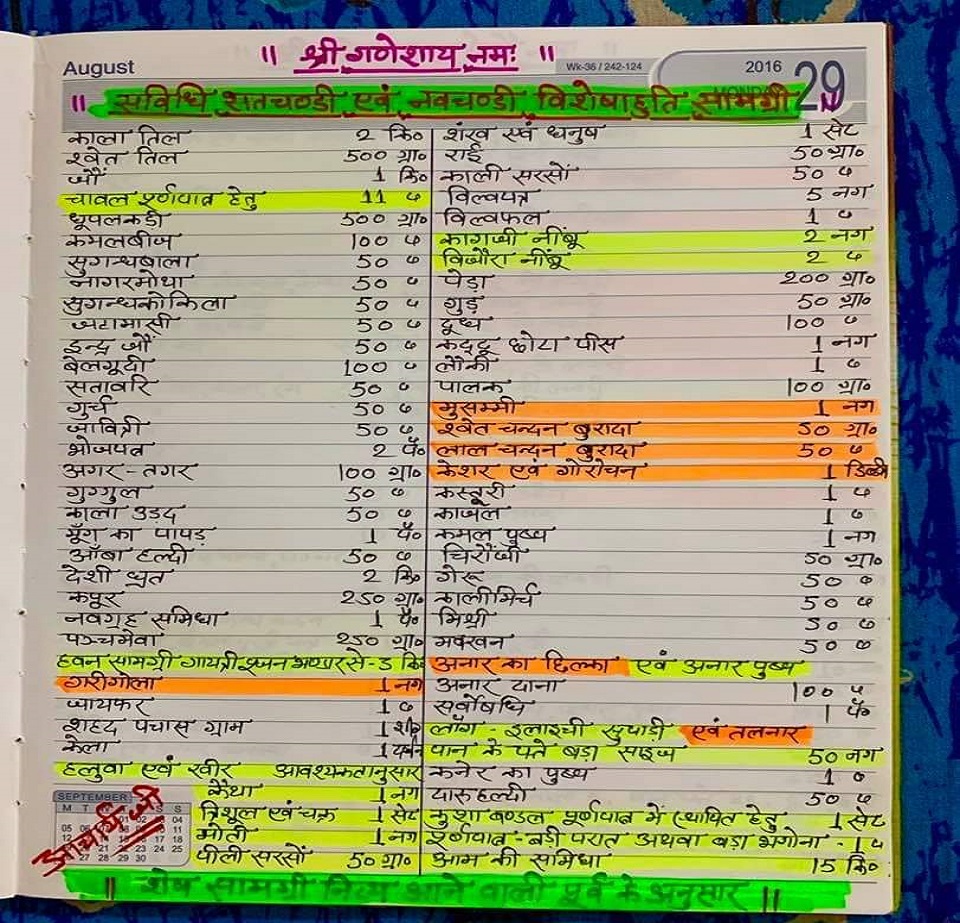 ॥ श्री गणेशाय नमः ॥
August
Wk-36 / 242-124
2016
29
MONDAY
॥ सविधि शतचण्डी एवं नवचण्डी विशेषाहुति सामग्री ॥
काला तिल 2 कि०
श्वेत तिल 500 ग्रा०
जौं 1 कि०
चावल पूर्णपात्र हेतु 11 "
धूपलकडी 500 ग्रा०
कमलबीज 100 "
सुगन्धबाला 50 "
नागरमोथा 50 "
सुगन्धकोकिला 50 "
जटामासी 50 "
इन्द्र जौं 50 "
बेलगूदी 100 "
सतावरि 50 "
गुर्च 50 "
जावित्री 50 "
भोजपत्र 2 पै०
अगर - तगर 100 ग्रा०
गुग्गुल 50 "
काला उडद 50 "
मूँग का पापड़ 1 पै०
आँबा हल्दी 50 "
देशी घृत 2 कि०
कपूर 250 ग्रा०
नवग्रह समिधा 1 पै०
पञ्चमेवा 250 ग्रा०
हवन सामग्री गायत्री भण्डार से - 5 कि०
गरीगोला 1 नग
जायफर 1 "
शहद पचास ग्राम 1 शी०
केला 1 दर्जन
हलुवा एवं खीर आवश्यकतानुसार
कैथा 1 नग
त्रिशूल एवं चक्र 1 सेट
मोती 1 नग
पीली सरसों 50 ग्रा०
शंख एवं धनुष 1 सेट
राई 50 ग्रा०
काली सरसों 50 "
विल्वपत्र 5 नग
विल्वफल 1 "
कागजी नींबू 2 नग
विजौरा नींबू 2 "
पेड़ा 200 ग्रा०
गुड़ 50 ग्रा०
दूध 100 "
कद्दू छोटा पीस 1 नग
लौकी 1 "
पालक 100 ग्रा०
मुसम्मी 1 नग
श्वेत चन्दन बुरादा 50 ग्रा०
लाल चन्दन बुरादा 50 "
केशर एवं गोरोचन 1 डिब्बी
कस्तूरी 1 "
काजल 1 "
कमल पुष्प 1 नग
चिरौंजी 50 ग्रा०
गेरू 50 "
कालीमिर्च 50 "
मिश्री 50 "
मक्खन 50 "
अनार का छिल्का एवं अनार पुष्प
अनार दाना 100 "
सर्वोषधि 1 पै०
लौंग - इलाइची सुपाड़ी एवं तलनार
पान के पत्ते बड़ा साइज 50 नग
कनेर का पुष्प 1 "
दारुहल्दी 50 "
कुशा बण्डल पूर्णपात्र में स्थापित हेतु 1 सेट
पूर्णपात्र - बड़ी परात अथवा बड़ा भगोना - 1 "
आम की समिधा 15 कि०
SEPTEMBER
आचार्य जी
॥ शेष सामग्री नित्य आने वाली पूर्व के अनुसार ॥